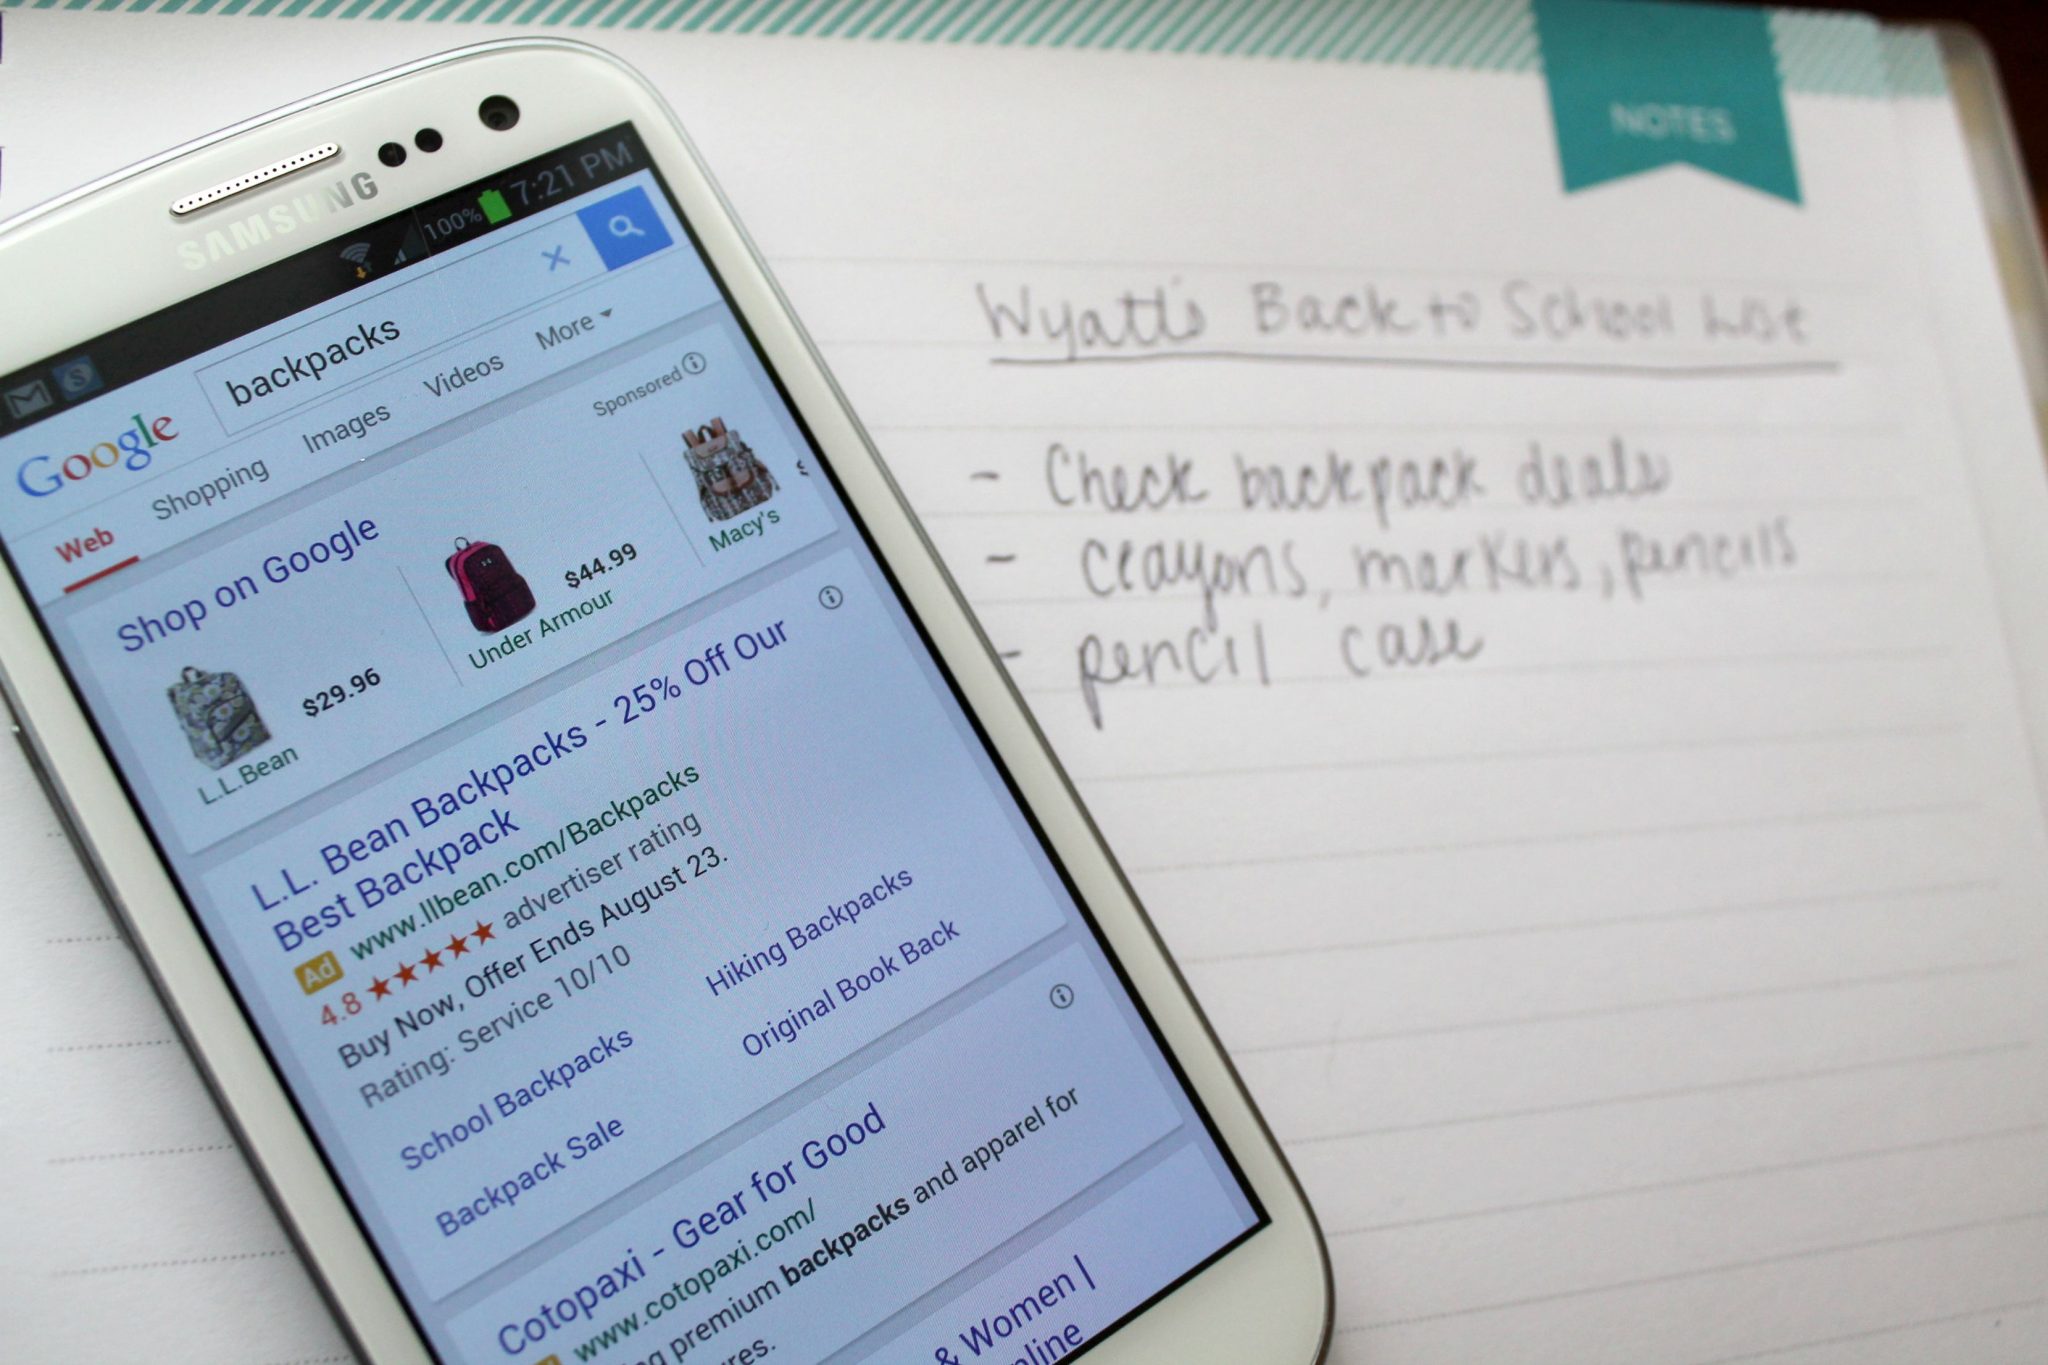 SAMSUNG
100% 7:21 PM
Google
backpacks
Web Shopping Images Videos More
Shop on Google
Sponsored
$29.96
L.L.Bean
$44.99
Under Armour
Macy's
L.L. Bean Backpacks - 25% Off Our
Best Backpack
Ad www.llbean.com/Backpacks
4.8 ★★★★★ advertiser rating
Buy Now, Offer Ends August 23.
Rating: Service 10/10
School Backpacks Hiking Backpacks
Backpack Sale Original Book Back
Cotopaxi - Gear for Good
www.cotopaxi.com/
premium backpacks and apparel for
& Women |
NOTES
Wyatt's Back to School List
- Check backpack deals
- crayons, markers, pencils
- pencil case